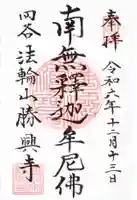 奉拝
令和六年十二月十三日
南無釋迦牟尼佛
四谷 法輪山勝興寺